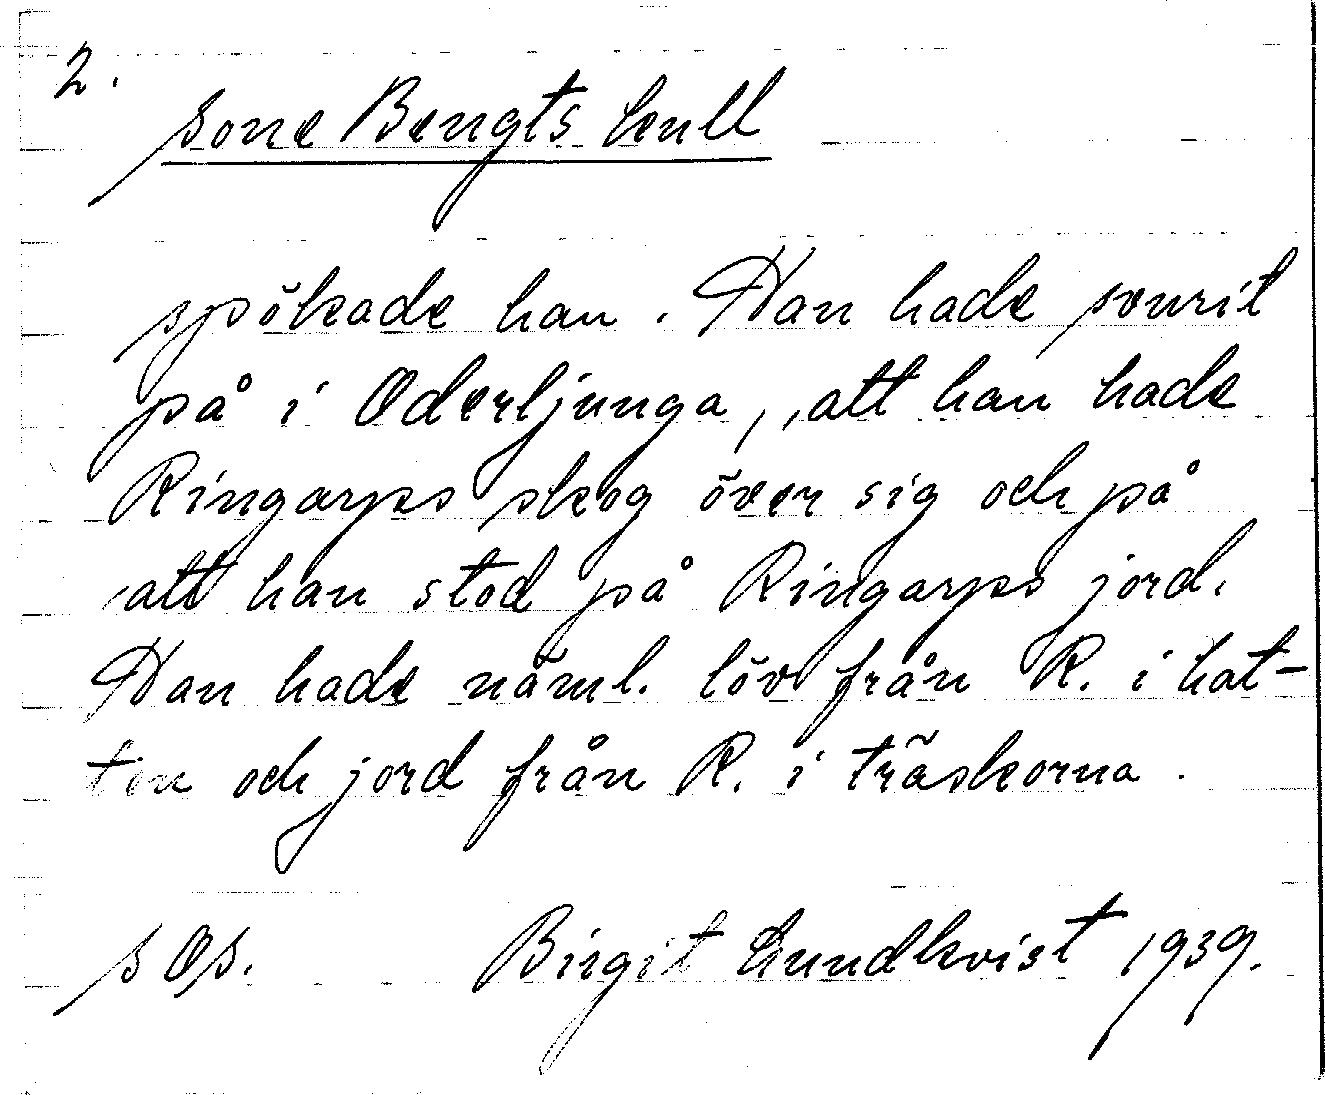 2.
Sone Bengts kull
spökade han. Han hade svurit
på i Oderljunga, att han hade
Ringarps skog över sig och på
att han stod på Ringarps jord.
Han hade näml. löv från R. i hat-
ten och jord från R. i träskorna.
S Ös. Birgit Lundkvist 1939.